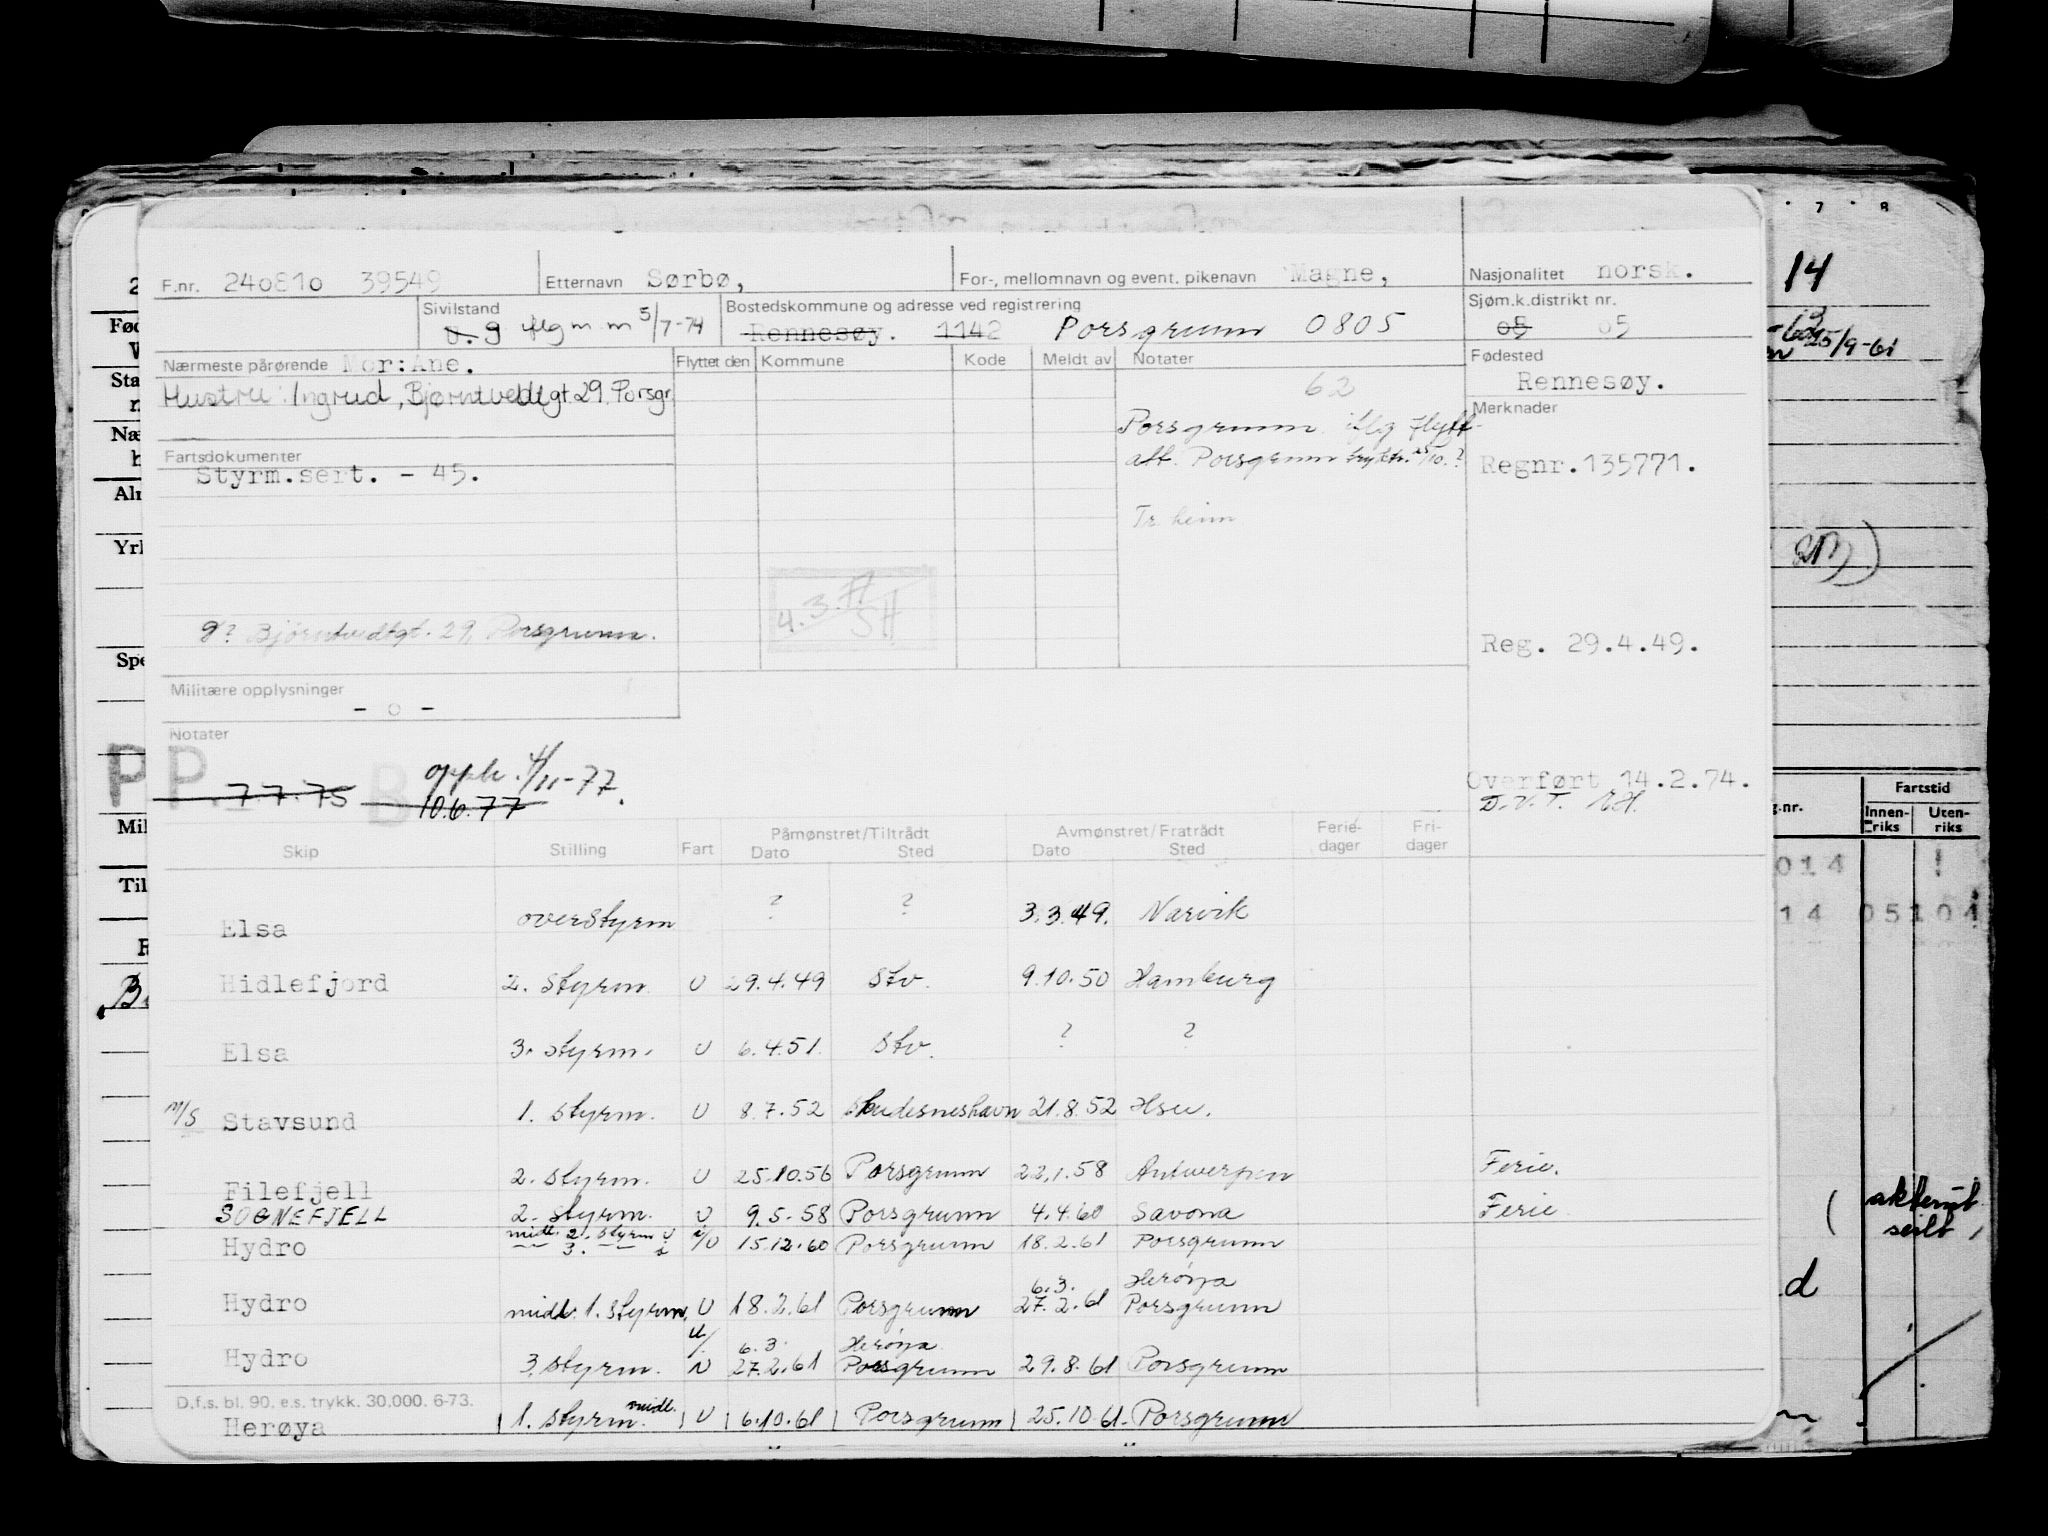 F.nr. 240810 39549 Etternavn Sørbö, For-, mellomnavn og event. pikenavn Magne, Nasjonalitet norsk.
Sivilstand u. g iflg m m 5/7-74 Bostedskommune og adresse ved registrering Rennesøy. 1142 Porsgrunn 0805 Sjøm.k.distrikt nr. 08 05
Nærmeste pårørende Mor: Ane. Flyttet den Kommune Kode Meldt av Notater Fødested
Rennesøy.
Hustru: Ingrid, Bjørntvedtgt. 29. Porsgr. 62
Merknader
Porsgrunn iflg flytt-
Fartsdokumenter att. Porsgrunn
Styrm.sert. - 45. Regnr. 135771.
Tr.heim
4.3.77
SH
g? Bjørntvedtgt. 29, Porsgrunn.
Reg. 29.4.49.
Militære opplysninger
- o -
Notater
PP. B
7.7.75 opph. 4/11-77.
10.6.77
Overført 14.2.74.
D.V.T.
Skip Stilling Fart Påmønstret/Tiltrådt Dato Sted Avmønstret/Fratrådt Dato Sted Ferie-dager Fri-dager
Elsa overstyrm ? ? 3.3.49. Narvik
Hidlefjord 2. styrm. U 29.4.49 Stv. 9.10.50 Hamburg
Elsa 3. styrm. U 6.4.51 Stv. ? ?
M/S Stavsund 1. styrm. U 8.7.52 Skudesneshavn 21.8.52 Hsu.
Filefjell 2. styrm. U 25.10.56 Porsgrunn 22.1.58 Antwerpen Ferie.
SOGNEFJELL 2. styrm. U 9.5.58 Porsgrunn 4.4.60 Savona Ferie
Hydro midl. 2. styrm U 3. — — i/U 15.12.60 Porsgrunn 18.2.61 Porsgrunn
6.3. Herøya
Hydro midl. 1. styrm. U 18.2.61 Porsgrunn 27.2.61 Porsgrunn
6.3. Herøya
Hydro 3. styrm. U/N 27.2.61 Porsgrunn 29.8.61 Porsgrunn
D.f.s. bl. 90. e.s. trykk. 30.000. 6-73.
Herøya 1. styrm. midl. U 6.10.61 Porsgrunn 25.10.61. Porsgrunn
7 8
14
25/9-61
Fartstid
g.nr. Innen-riks Uten-riks
014
14 05104
akterut
seilt
d